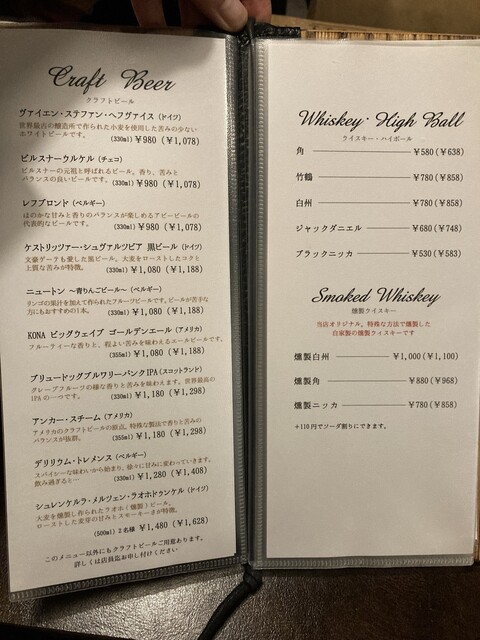 Craft Beer
クラフトビール
ヴァイエン・ステファン・ヘフヴァイス (ドイツ)
世界最古の醸造所で作られた小麦を使用した苦みの少ない
ホワイトビールです。
(330ml) ￥980 (￥1,078)
ピルスナーウルケル (チェコ)
ピルスナーの元祖と呼ばれるビール。香り、苦みと
バランスの良いビールです。
(330ml) ￥980 (￥1,078)
レフブロンド (ベルギー)
ほのかな甘みと香りのバランスが楽しめるアビービールの
代表的なビールです。
(330ml) ￥980 (￥1,078)
ケストリッツァー・シュヴァルツビア 黒ビール (ドイツ)
文豪ゲーテも愛した黒ビール。大麦をローストしたコクと
上質な苦みが特徴。
(330ml) ￥1,080 (￥1,188)
ニュートン ～青りんごビール～ (ベルギー)
リンゴの果汁を加えて作られたフルーツビールです。ビールが苦手な
方にもおすすめの1本。
(330ml) ￥1,080 (￥1,188)
KONA ビッグウェイブ ゴールデンエール (アメリカ)
フルーティーな香りと、程よい苦みを味わえるエールビールです。
(355ml) ￥1,080 (￥1,188)
ブリュードッグブルワリーパンクIPA (スコットランド)
グレープフルーツの様な香りと苦みを味わえます。世界最高の
IPAの一つです。
(330ml) ￥1,180 (￥1,298)
アンカー・スチーム (アメリカ)
アメリカのクラフトビールの原点。特殊な製法で香りと苦みの
バランスが抜群。
(355ml) ￥1,180 (￥1,298)
デリリウム・トレメンス (ベルギー)
スパイシーな味わいから始まり、徐々に甘みに変わっていきます。
飲み過ぎると…
(330ml) ￥1,280 (￥1,408)
シュレンケルラ・メルツェン・ラオホドゥンケル (ドイツ)
大麦を燻製し作られたラオホ(燻製)ビール。
ローストした麦芽の甘みとスモーキーさが特徴。
(500ml) 2名様 ￥1,480 (￥1,628)
このメニュー以外にもクラフトビールご用意あります。
詳しくは店員迄お申し付けください
Whiskey・High Ball
ウイスキー・ハイボール
角 ￥580 (￥638)
竹鶴 ￥780 (￥858)
白州 ￥780 (￥858)
ジャックダニエル ￥680 (￥748)
ブラックニッカ ￥530 (￥583)
Smoked Whiskey
燻製ウイスキー
当店オリジナル。特殊な方法で燻製した
自家製の燻製ウィスキーです
燻製白州 ￥1,000 (￥1,100)
燻製角 ￥880 (￥968)
燻製ニッカ ￥780 (￥858)
+110円でソーダ割りにできます。